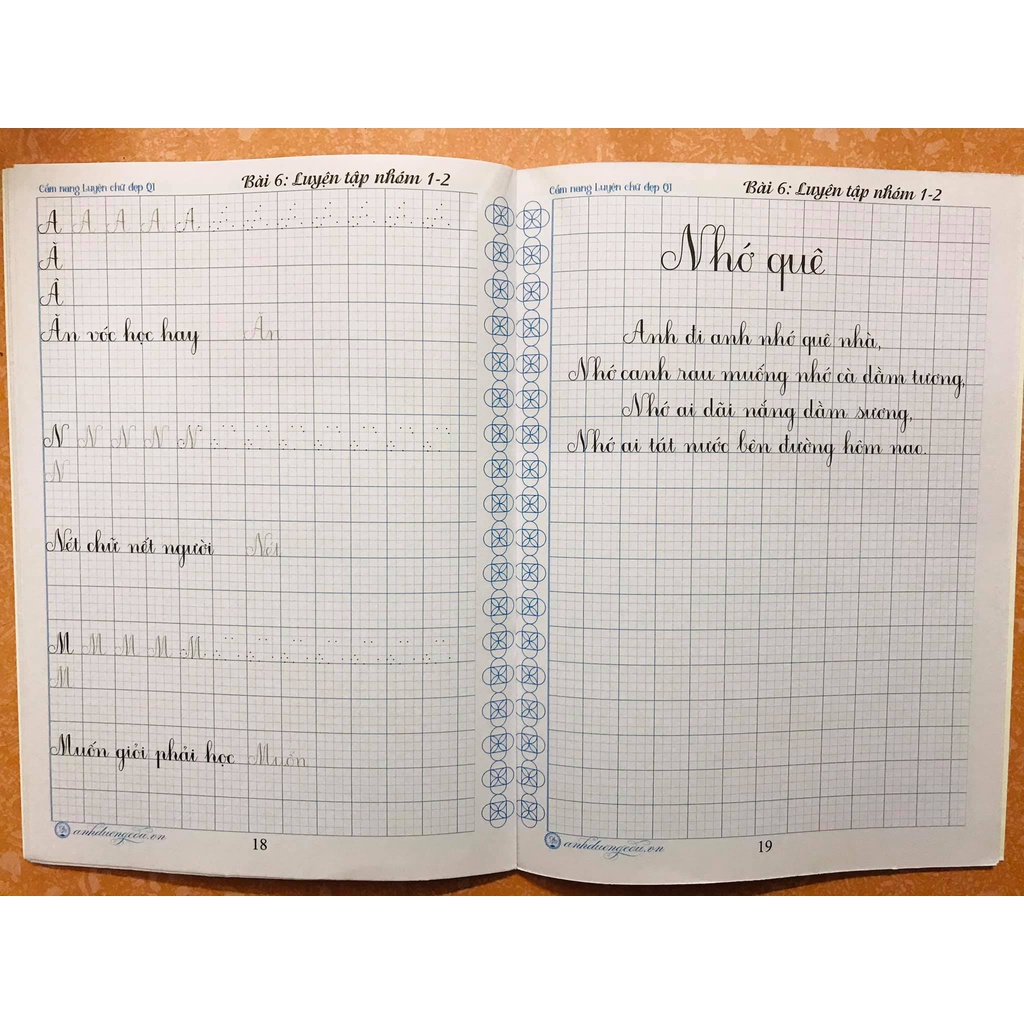 Cẩm nang Luyện chữ đẹp Q1
Bài 6: Luyện tập nhóm 1-2
A A A A A
Ă
Â
Ăn vóc học hay Ăn
N N N N N
N
Nét chữ nết người Nét
M M M M M
M
Muốn giỏi phải học Muốn
anhduongxou.vn
18
Cẩm nang Luyện chữ đẹp Q1
Bài 6: Luyện tập nhóm 1-2
Nhớ quê
Anh đi anh nhớ quê nhà,
Nhớ canh rau muống nhớ cà dầm tương,
Nhớ ai dãi nắng dầm sương,
Nhớ ai tát nước bên đường hôm nao.
anhduongxou.vn
19